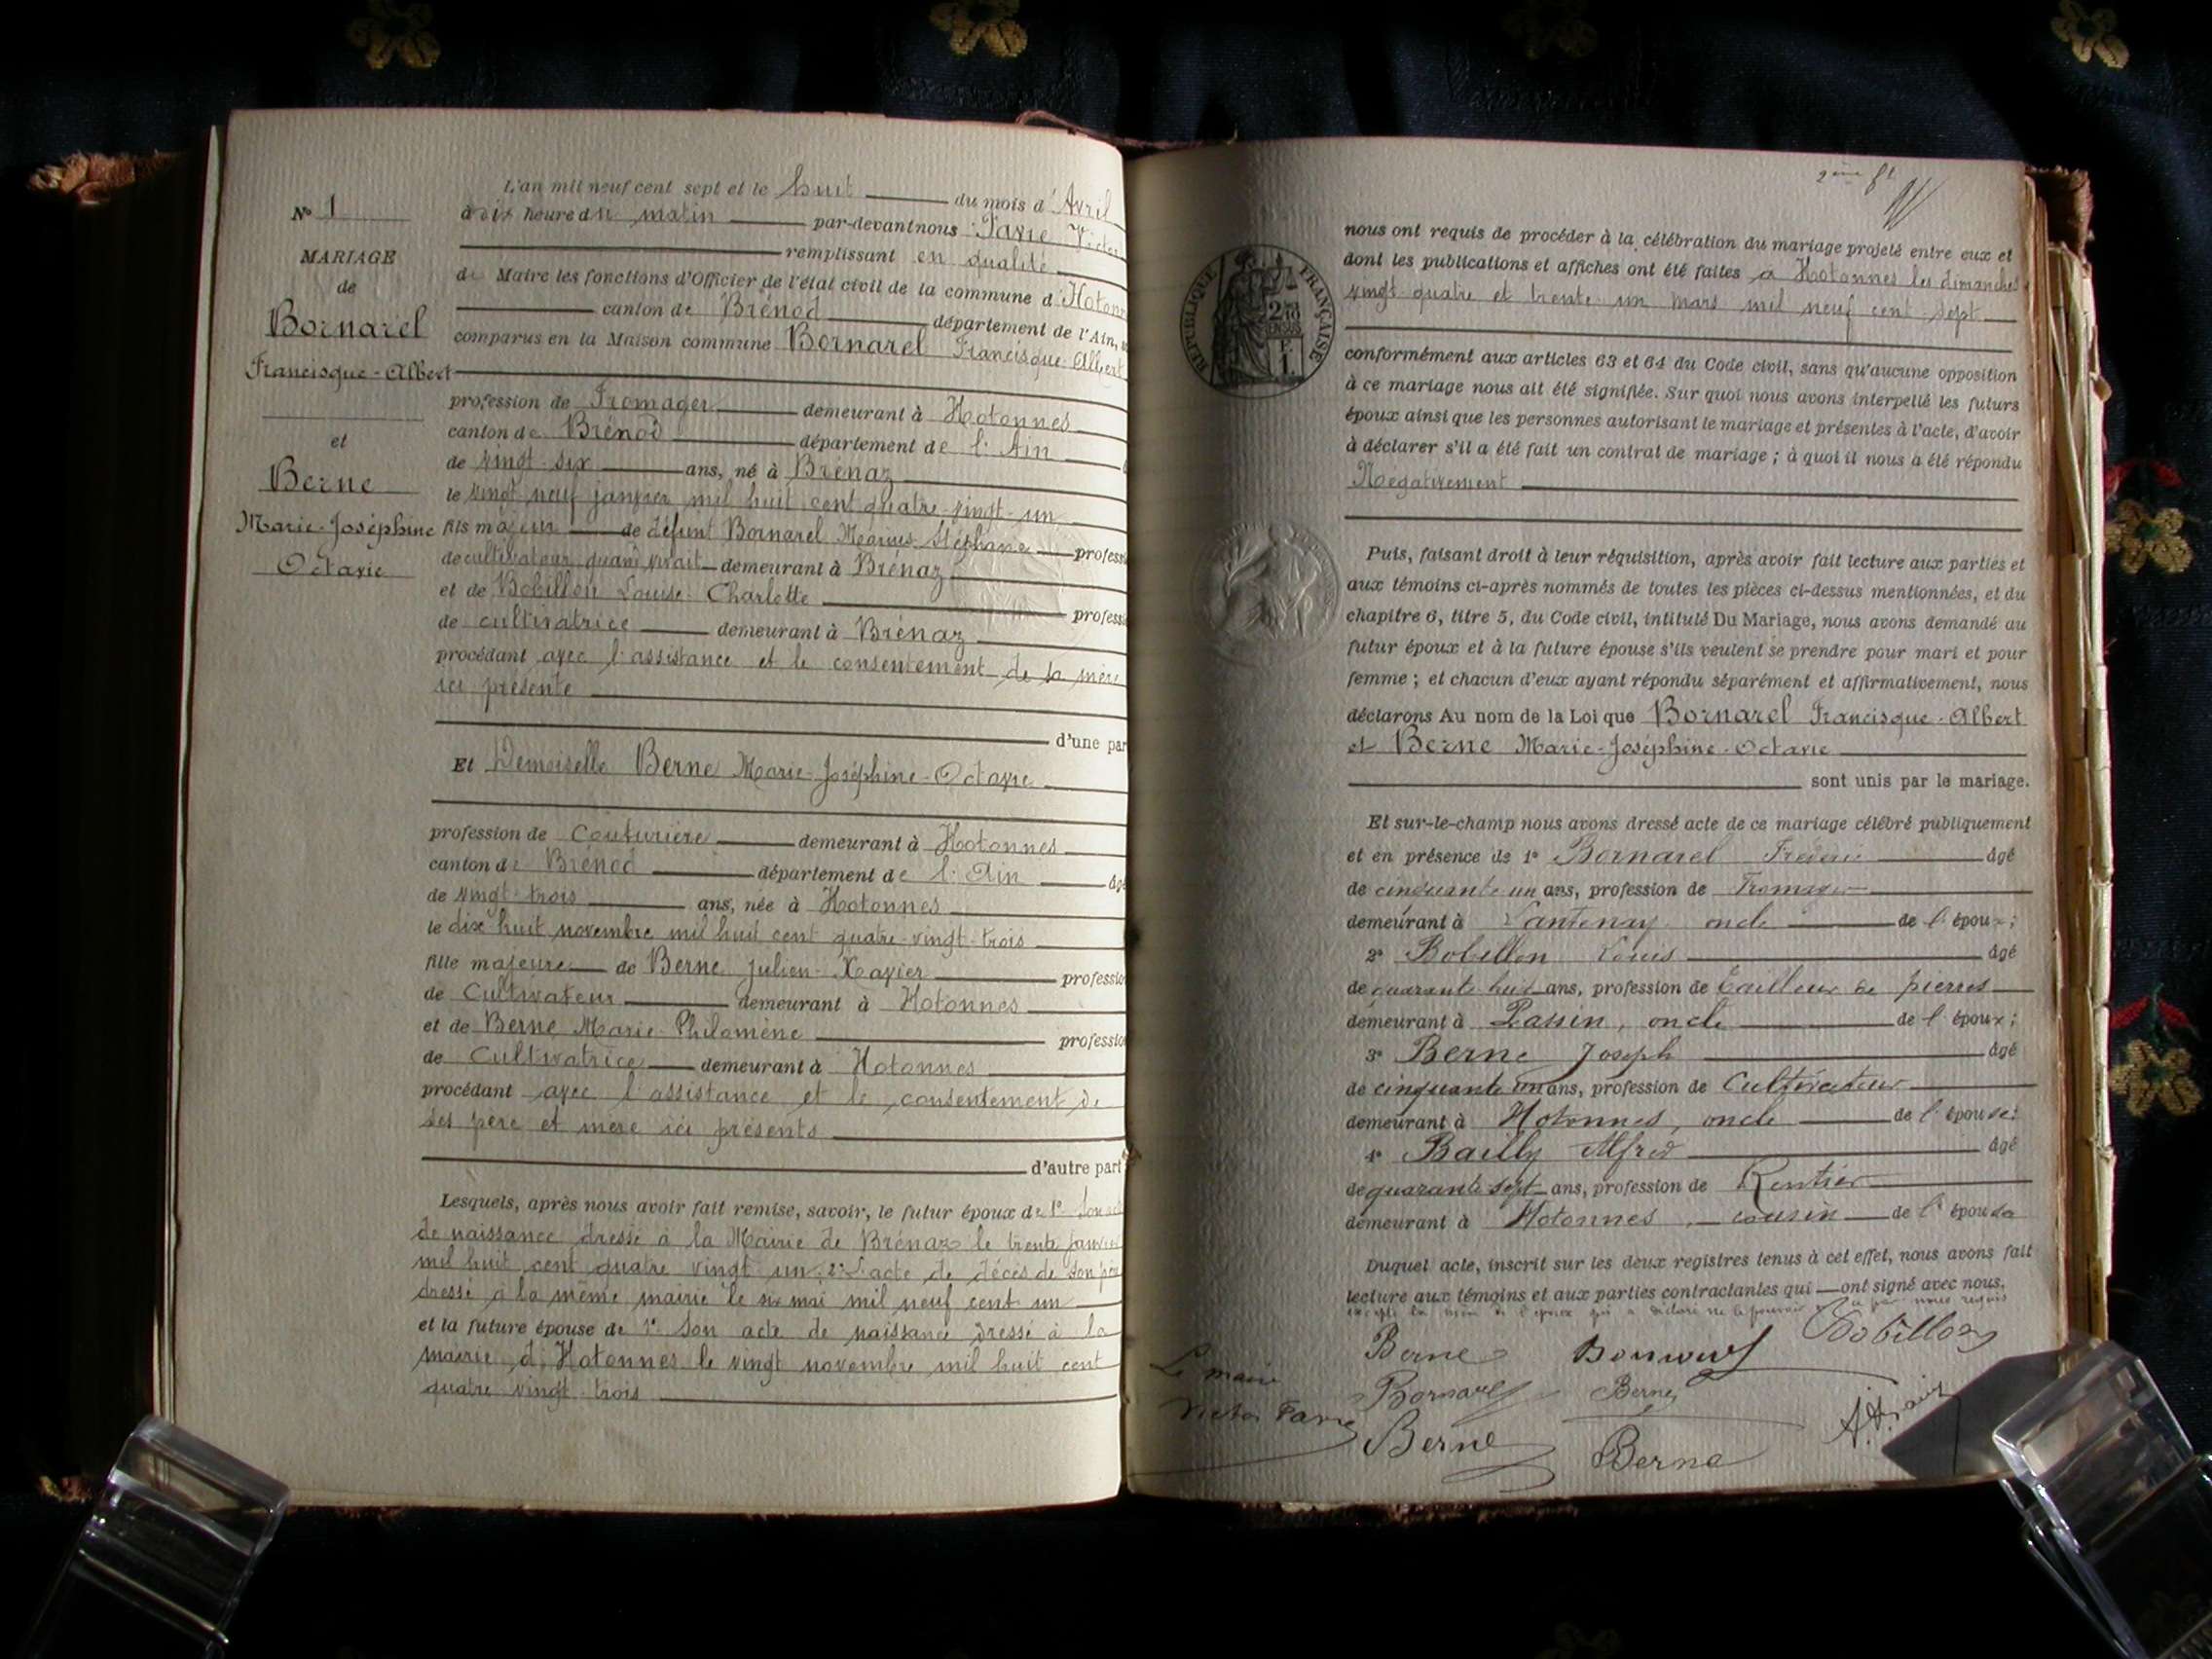 N° 1
MARIAGE
de
Bornarel
Francisque-Albert
et
Berne
Marie-Joséphine
Octavie
L'an mil neuf cent sept et le huit du mois d'Avril
à dix heure du matin par-devant nous Favre Victor
remplissant en qualité
de Maire les fonctions d'Officier de l'état civil de la commune d'Hotonn
canton de Brénod département de l'Ain,
comparus en la Maison commune Bornarel Francisque-Albert
profession de Fromager demeurant à Hotonnes
canton de Brénod département de l'Ain
de vingt-six ans, né à Brénaz
le vingt neuf janvier mil huit cent quatre-vingt-un
fils majeur de défunt Bornarel Marius Stéphane profess
de cultivateur quand vivait demeurant à Brénaz
et de Bobillon Louise Charlotte profess
de cultivatrice demeurant à Brénaz
procédant avec l'assistance et le consentement de sa mère
ici présente
d'une par
Et Demoiselle Berne Marie-Joséphine-Octavie
profession de Couturière demeurant à Hotonnes
canton de Brénod département de l'Ain âg
de vingt-trois ans, née à Hotonnes
le dix huit novembre mil huit cent quatre-vingt-trois
fille majeure de Berne Julien-Xavier professio
de Cultivateur demeurant à Hotonnes
et de Berne Marie-Philomène professio
de Cultivatrice demeurant à Hotonnes
procédant avec l'assistance et le consentement de
ses père et mère ici présents
d'autre part
Lesquels, après nous avoir fait remise, savoir, le futur époux de 1° Son
de naissance dressé à la Mairie de Brénaz le trente janvier
mil huit cent quatre vingt un; 2° L'acte de décès de son père
dressé à la même mairie le six mai mil neuf cent un
et la future épouse de 1° Son acte de naissance dressé à la
mairie d'Hotonnes le vingt novembre mil huit cent
quatre-vingt-trois
2ème ft
RÉPUBLIQUE FRANÇAISE
nous ont requis de procéder à la célébration du mariage projeté entre eux et
dont les publications et affiches ont été faites à Hotonnes les dimanches
vingt-quatre et trente-un mars mil neuf cent sept
conformément aux articles 63 et 64 du Code civil, sans qu'aucune opposition
à ce mariage nous ait été signifiée. Sur quoi nous avons interpellé les futurs
époux ainsi que les personnes autorisant le mariage et présentes à l'acte, d'avoir
à déclarer s'il a été fait un contrat de mariage ; à quoi il nous a été répondu
Négativement
Puis, faisant droit à leur réquisition, après avoir fait lecture aux parties et
aux témoins ci-après nommés de toutes les pièces ci-dessus mentionnées, et du
chapitre 6, titre 5, du Code civil, intitulé Du Mariage, nous avons demandé au
futur époux et à la future épouse s'ils veulent se prendre pour mari et pour
femme ; et chacun d'eux ayant répondu séparément et affirmativement, nous
déclarons Au nom de la Loi que Bornarel Francisque-Albert
et Berne Marie-Joséphine-Octavie
sont unis par le mariage.
Et sur-le-champ nous avons dressé acte de ce mariage célébré publiquement
et en présence de 1° Bornarel Frédéric âgé
de cinquante-un ans, profession de Fromager
demeurant à Lantenay oncle de l'époux;
2° Bobillon Louis âgé
de quarante huit ans, profession de tailleur de pierres
demeurant à Passin, oncle de l'époux;
3° Berne Joseph âgé
de cinquante un ans, profession de Cultivateur
demeurant à Hotonnes, oncle de l'épouse:
4° Bailly Alfred âgé
de quarante sept ans, profession de Rentier
demeurant à Hotonnes, cousin de l'épouse
Duquel acte, inscrit sur les deux registres tenus à cet effet, nous avons fait
lecture aux témoins et aux parties contractantes qui ont signé avec nous,
excepté la mère de l'époux qui a déclaré ne le pouvoir
Berne Bornarel Bobillon
Bornarel Berne
Le maire
Victor Favre
Berne Berne